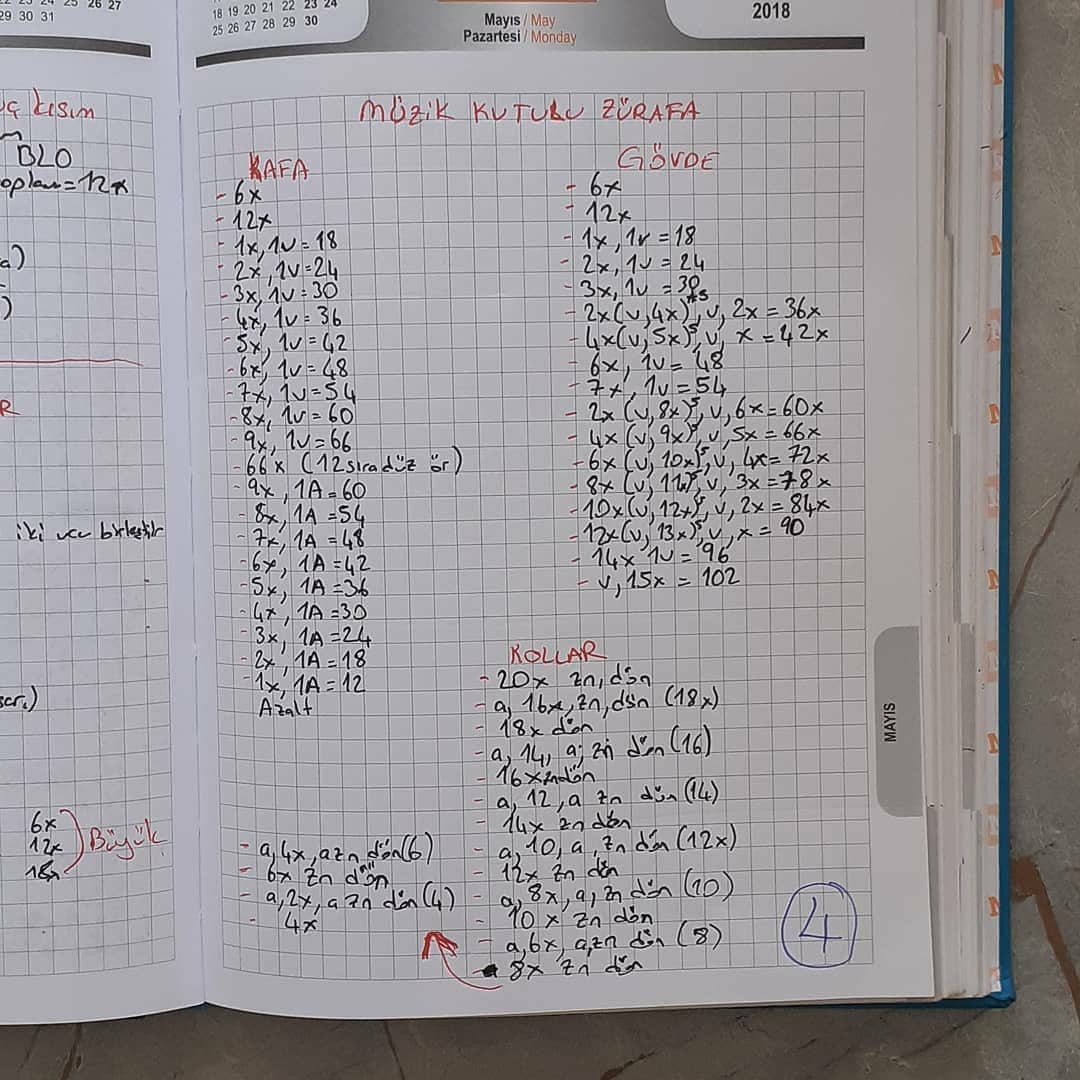 22 23 24 25 26 27
29 30 31
18 19 20 21 22 23 24
25 26 27 28 29 30
Mayıs / May
Pazartesi / Monday
2018
uç kısım
BLO
oplam=12x
a)
)
R
iki ucu birleştir
6x
12x
18x
Büyük
MÜZİK KUTULU ZÜRAFA
KAFA
- 6x
- 12x
- 1x, 1v = 18
- 2x, 1v = 24
- 3x, 1v = 30
- 4x, 1v = 36
- 5x, 1v = 42
- 6x, 1v = 48
- 7x, 1v = 54
- 8x, 1v = 60
- 9x, 1v = 66
- 66x (12 sıra düz ör)
- 9x, 1A = 60
- 8x, 1A = 54
- 7x, 1A = 48
- 6x, 1A = 42
- 5x, 1A = 36
- 4x, 1A = 30
- 3x, 1A = 24
- 2x, 1A = 18
- 1x, 1A = 12
Azalt
GÖVDE
- 6x
- 12x
- 1x, 1v = 18
- 2x, 1v = 24
- 3x, 1v = 30
- 2x(v,4x)*5, v, 2x = 36x
- 4x(v,5x)5, v, x = 42x
- 6x, 1v = 48
- 7x, 1v = 54
- 2x (v,8x)5, v, 6x = 60x
- 4x (v, 9x)5, v, 5x = 66x
- 6x (v, 10x)5, v, 4x = 72x
- 8x (v, 11x)5, v, 3x = 78x
- 10x(v, 12x)5, v, 2x = 84x
- 12x(v, 13x)5, v, x = 90
- 14x 1v = 96
- v, 15x = 102
KOLLAR
- 20x zn, dön
- a, 16x, zn, dön (18x)
- 18x dön
- a, 14, a, zn dön (16)
- 16x zn dön
- a, 12, a zn dön (14)
- 14x zn dön
- a, 10, a, zn dön (12x)
- 12x zn dön
- a, 8x, a, zn dön (10)
- 10x zn dön
- a, 6x, a, zn dön (8)
- 8x zn dön
- a, 4x, a zn dön (6)
- 6x zn dön
- a, 2x, a zn dön (4)
- 4x
4
MAYIS